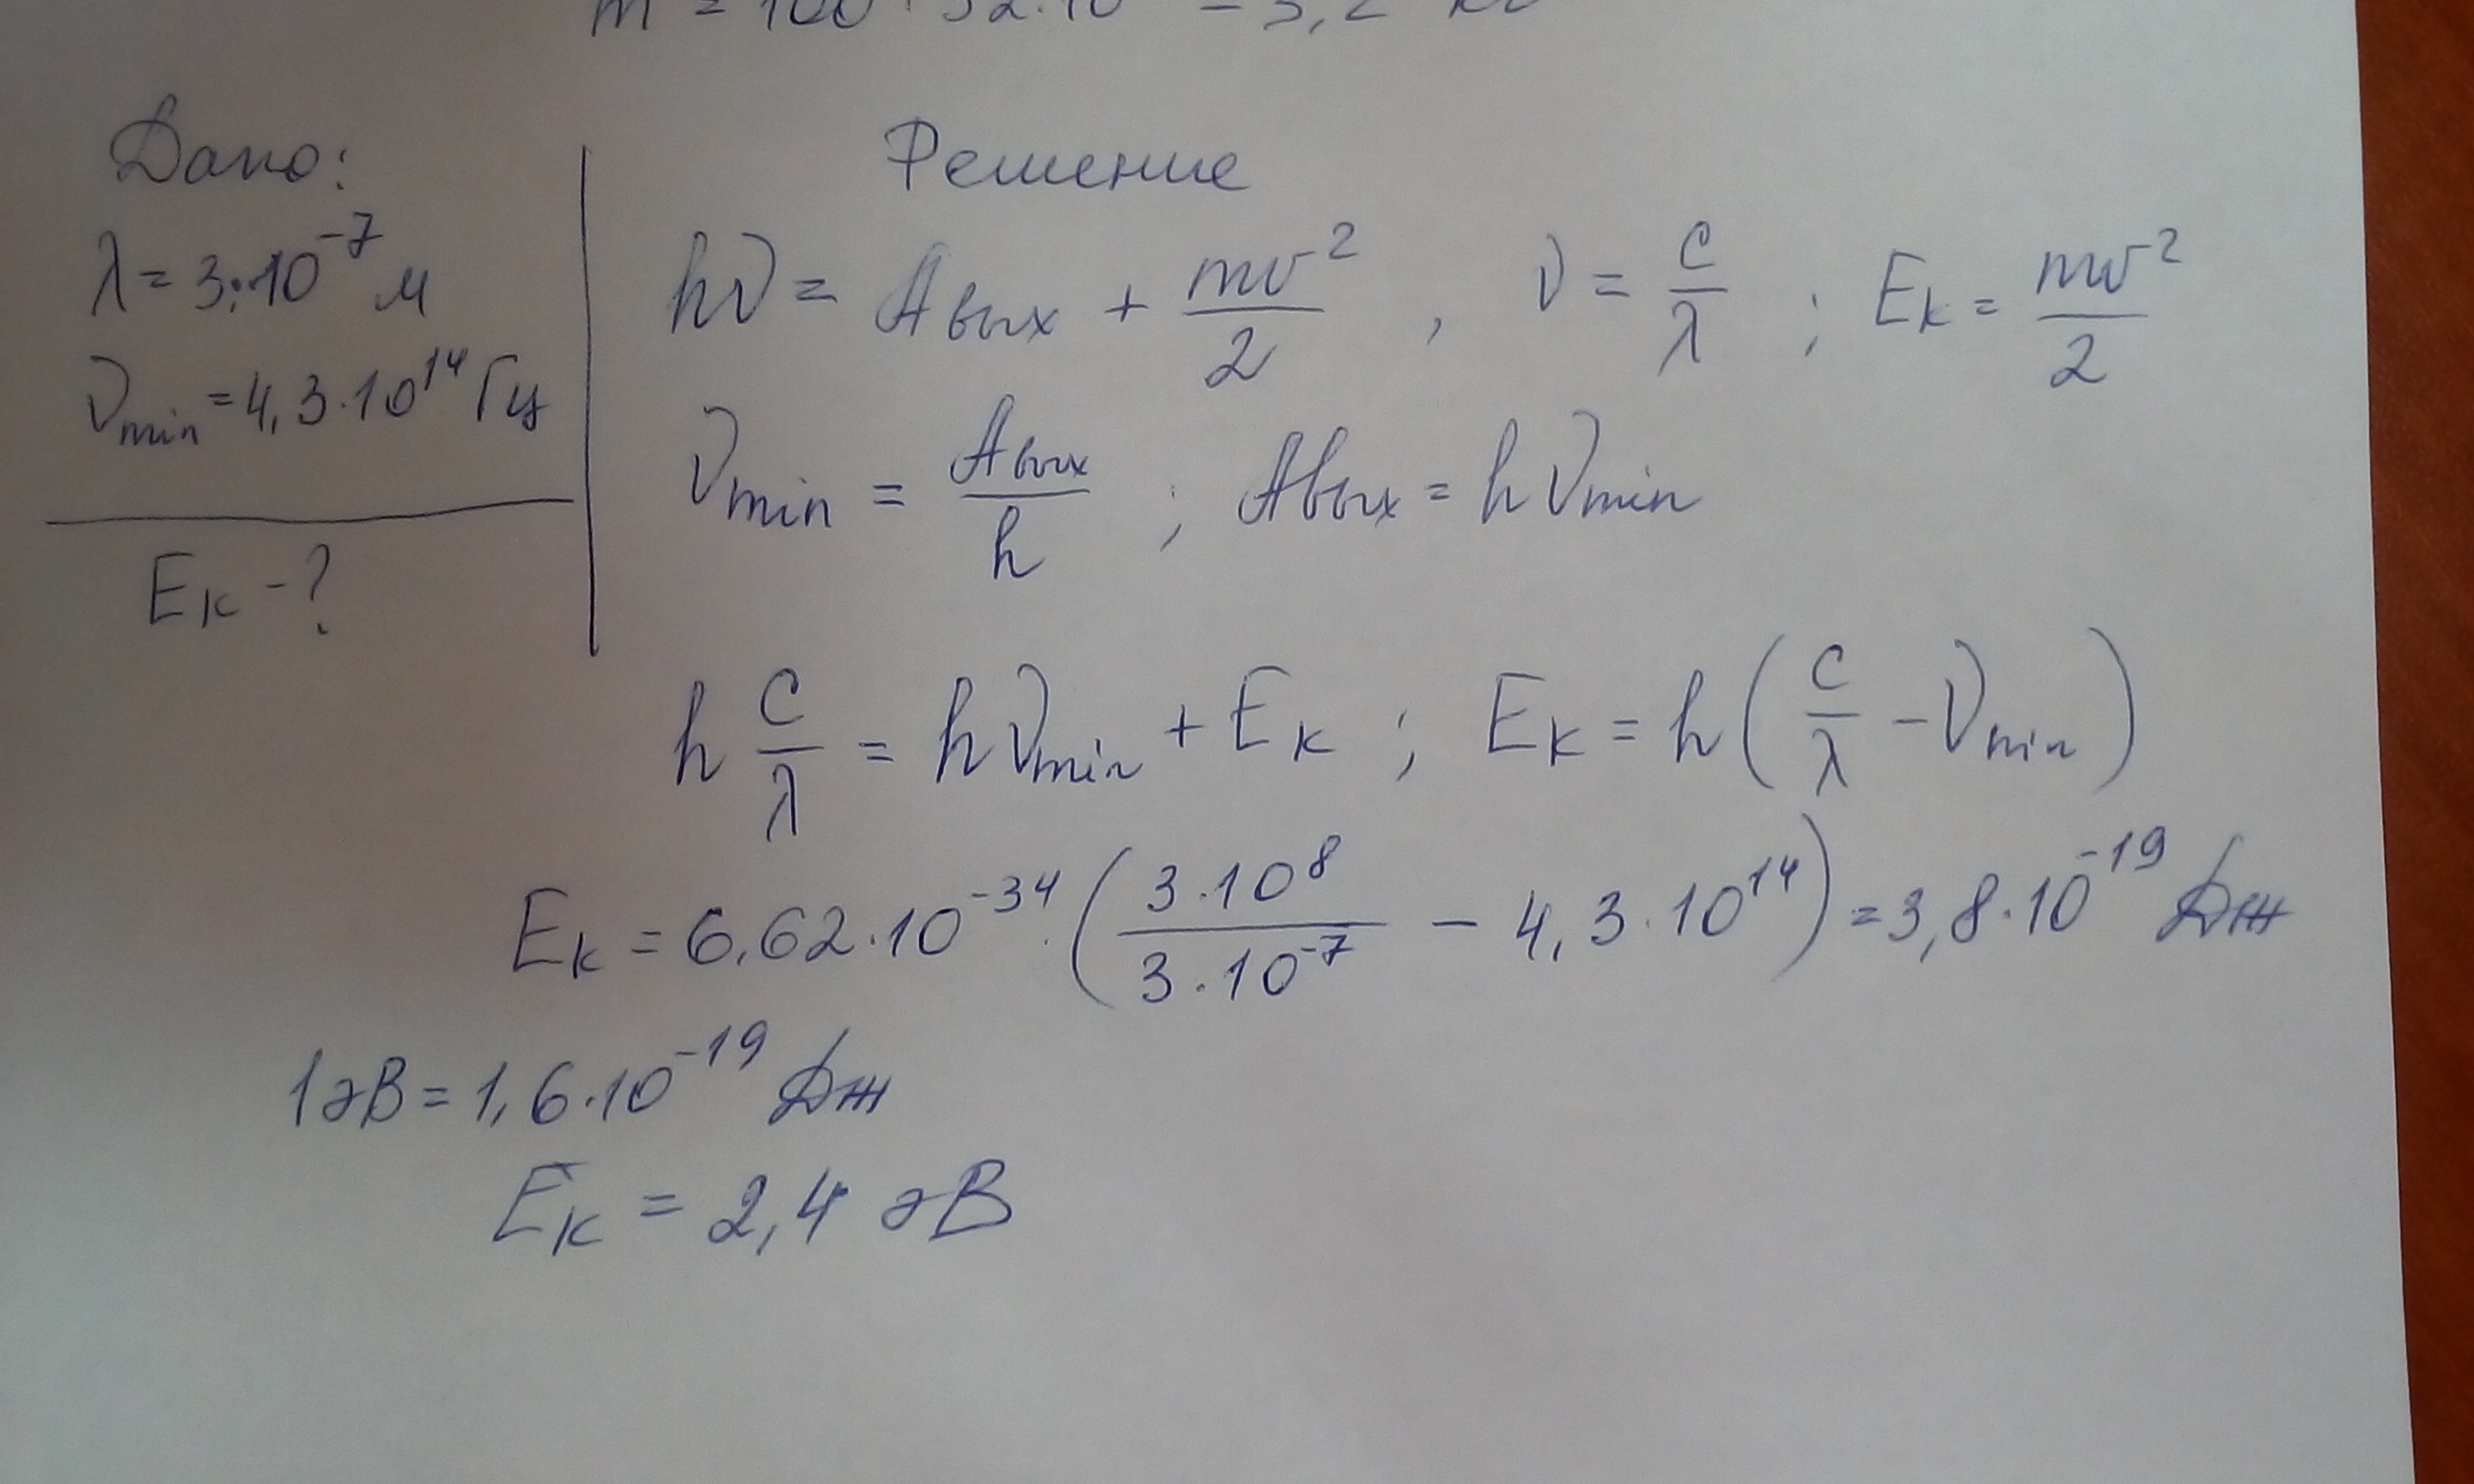 m = 100 · 32 · 10 = 3,2 кг
Дано:
λ = 3·10⁻⁷ м
ν_min = 4,3·10¹⁴ Гц
E_к - ?
Решение
hν = A_вых + mv²/2 , ν = c/λ ; E_к = mv²/2
ν_min = A_вых/h ; A_вых = hν_min
h c/λ = hν_min + E_к ; E_к = h(c/λ - ν_min)
E_к = 6,62·10⁻³⁴·(3·10⁸/3·10⁻⁷ - 4,3·10¹⁴) = 3,8·10⁻¹⁹ Дж
1эВ = 1,6·10⁻¹⁹ Дж
E_к = 2,4 эВ